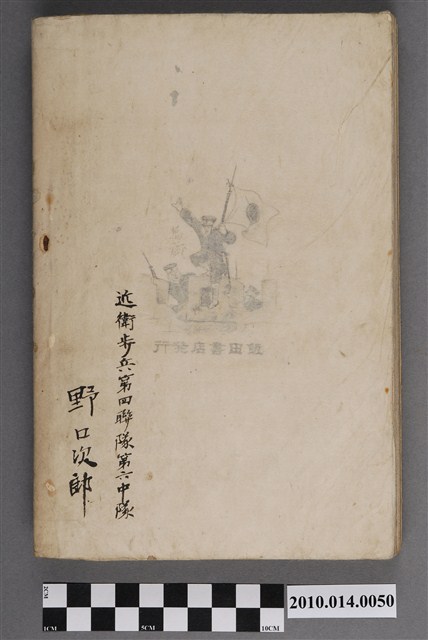 近衛歩兵第四聯隊第六中隊
野口次郎
2CM
1CM
5CM
10CM
2010.014.0050